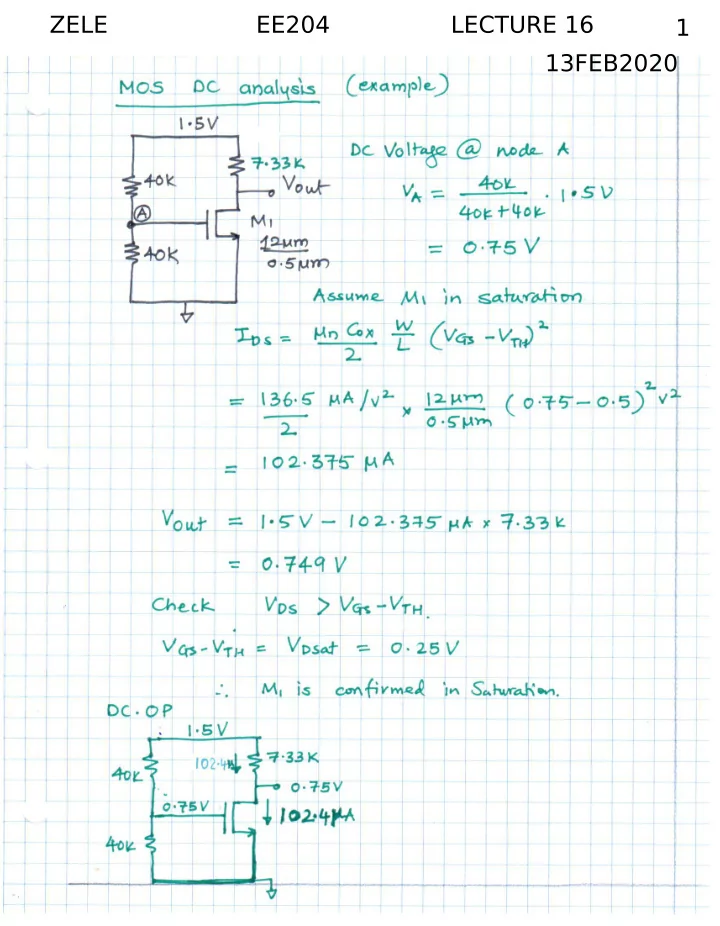 ZELE EE204 LECTURE 16 1
13FEB2020
MOS DC analysis (example)
1.5V
7.33K
DC Voltage @ node A
40K
Vout
VA = 40K / (40K + 40K) · 1.5V
A
M1
12μm / 0.5μm
= 0.75 V
40K
Assume M1 in saturation
IDS = μn Cox / 2 W/L (VGS - VTH)²
= 136.5 μA/V² / 2 × 12μm / 0.5μm (0.75 - 0.5)² V²
= 102.375 μA
Vout = 1.5V - 102.375 μA x 7.33K
= 0.749 V
Check VDS > VGS - VTH.
VGS - VTH = VDsat = 0.25V
∴ M1 is confirmed in Saturation.
DC.OP
1.5V
102.4μ
7.33K
40K
0.75V
0.75V
102.4μA
40K